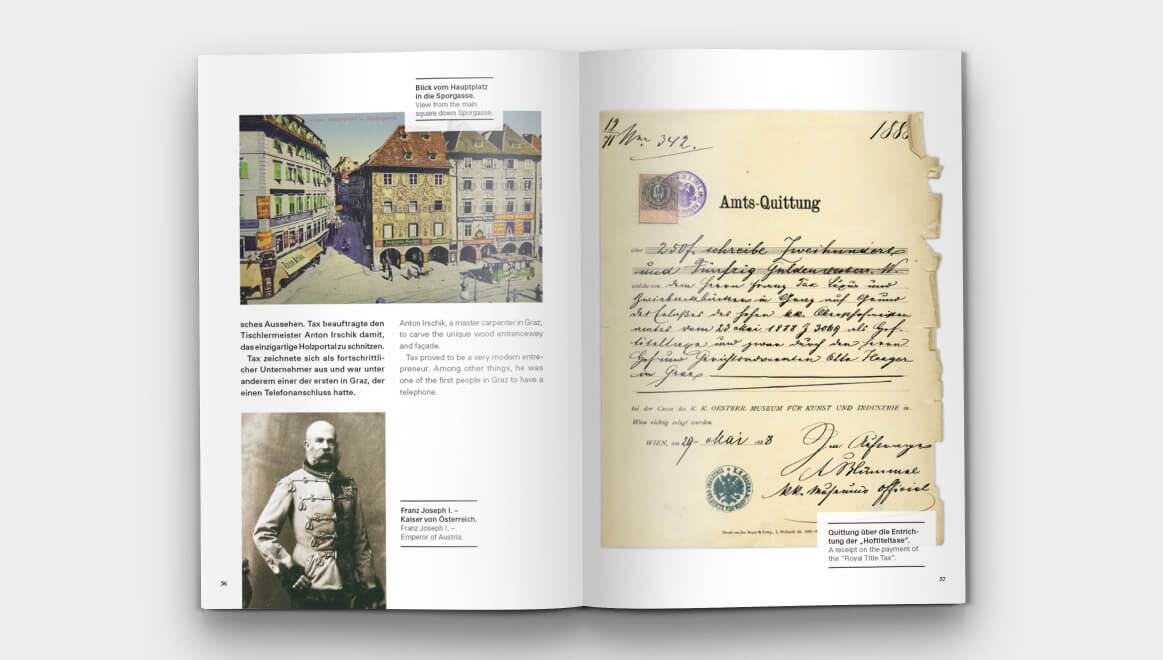 Blick vom Hauptplatz
in die Sporgasse.
View from the main
square down Sporgasse.
sches Aussehen. Tax beauftragte den
Tischlermeister Anton Irschik damit,
das einzigartige Holzportal zu schnitzen.
Tax zeichnete sich als fortschrittli-
cher Unternehmer aus und war unter
anderem einer der ersten in Graz, der
einen Telefonanschluss hatte.
Anton Irschik, a master carpenter in Graz,
to carve the unique wood entranceway
and façade.
Tax proved to be a very modern entre-
preneur. Among other things, he was
one of the first people in Graz to have a
telephone.
Franz Joseph I. –
Kaiser von Österreich.
Franz Joseph I. –
Emperor of Austria.
36
19
11 Nr. 342. 1888
Amts-Quittung
über 250f. schreibe Zweihundert
und Fünfzig Gulden
welche von dem Herrn Franz Tax
in Graz auf Grund
des Erlaßes des hohen kk.
vom 23 Mai 1888 Z 3069 als Hof-
titeltaxe und zwar durch den Herrn
Hof und Otto
in Graz
bei der Cassa des K. K. OESTERR. MUSEUM FÜR KUNST UND INDUSTRIE in
Wien richtig erlegt wurden
WIEN, am 29. Mai 1888
kk. Museums Official
Quittung über die Entrich-
tung der „Hoftiteltaxe“.
A receipt on the payment of
the “Royal Title Tax”.
37